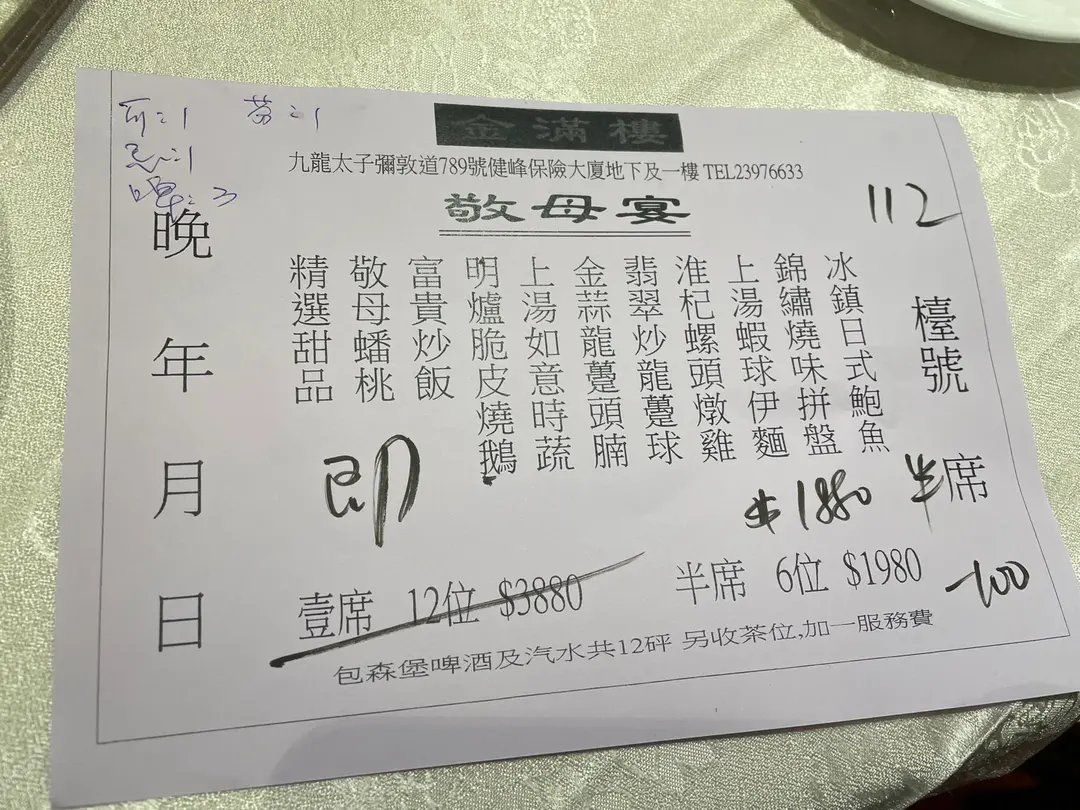 金滿樓
九龍太子彌敦道789號健峰保險大廈地下及一樓 TEL23976633
敬母宴
112
檯號
半席
冰鎮日式鮑魚
錦繡燒味拼盤
上湯蝦球伊麵
淮杞螺頭燉雞
翡翠炒龍躉球
金蒜龍躉頭腩
上湯如意時蔬
明爐脆皮燒鵝
富貴炒飯
敬母蟠桃
精選甜品
晚年月日
即
$1880
壹席 12位 $3880
半席 6位 $1980
-100
包森堡啤酒及汽水共12砰 另收茶位,加一服務費